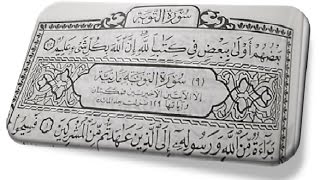 سُورَةُ التَّوْبَةِ
بَعْضُهُمْ أَوْلَىٰ بِبَعْضٍ فِي كِتَٰبِ ٱللَّهِ إِنَّ ٱللَّهَ بِكُلِّ شَيْءٍ عَلِيمٌ
(٩) سُورَةُ التَّوْبَةِ مَدَنِيَّة
إلا الآيتين الأخيرتين فمكيتان
وآياتها ١٢٩ نزلت بعد المائدة
بَرَآءَةٌ مِّنَ ٱللَّهِ وَرَسُولِهِۦٓ إِلَى ٱلَّذِينَ عَٰهَدتُّم مِّنَ ٱلْمُشْرِكِينَ ١ فَسِيحُوا۟